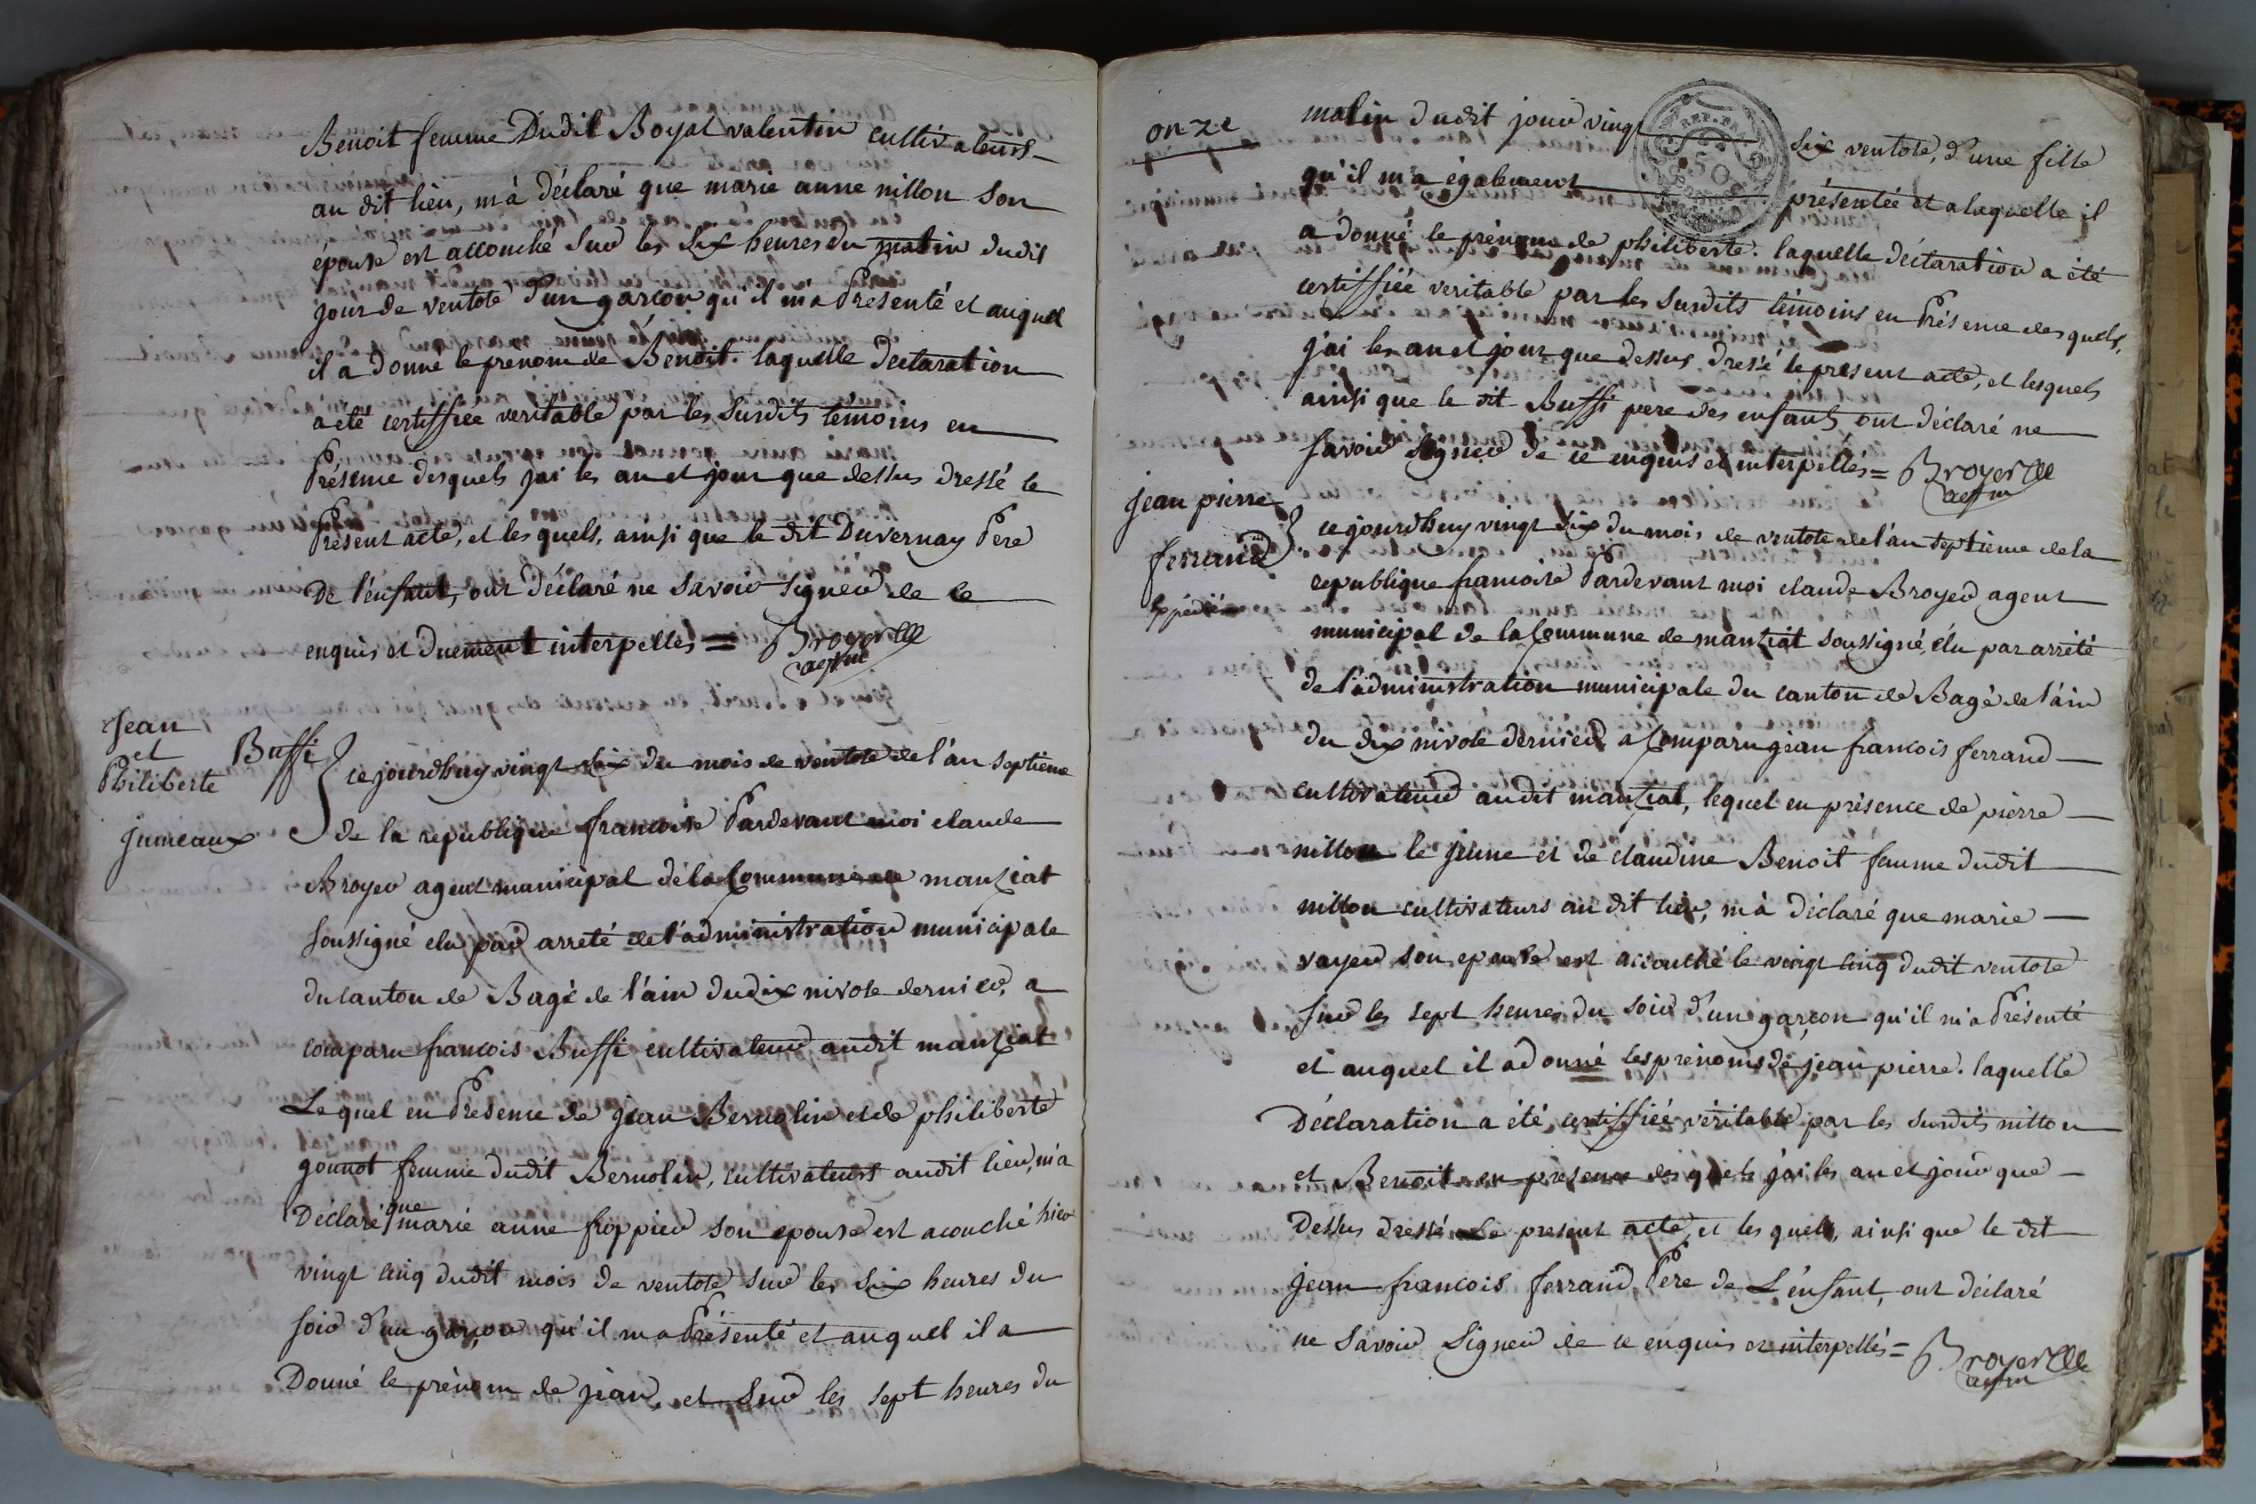 Benoit femme Dudit Boyat valentin cultivateurs
au dit lieu, m'a déclaré que marie anne nillon son
epouse est accouché sur les six heures du matin dudit
jour de ventose d'un garçon qu'il m'a Présenté et auquel
il a Donné le prenom de Benoit. laquelle declaration
a été certiffiée veritable par les susdits temoins en
Présence desquels jai les an et jour que dessus dressé le
Présent acte, et les quels, ainsi que le dit Duvernay Pere
De l'enfant, ont Déclaré ne savoir signer de ce
enquis et duement interpellés = Broyer
agent
Jean
et Buffi
Philiberte
jumeaux
ce jourdhuy vingt six du mois de ventose de l'an septieme
de la republique francoise Pardevant moi claude
Broyer agent municipal de la Commune de manziat
soussigné elu par arreté de l'administration municipale
du canton de Bagé de l'ain du dix nivose dernier, a
comparu francois Buffi cultivateur audit manziat
Lequel en Presence de jean Bernolin et de philiberte
gonnot femme dudit Bernolin, cultivateurs audit lieu, m'a
Déclaré que marie anne froppier son epouse est acouché hier
vingt cinq dudit mois de ventose sur les six heures du
soir d'un garçon qu'il m'a Présenté et auquel il a
Donné le prénom de jean, et sur les sept heures du
onze
matin dudit jour vingt six ventose, d'une fille
qu'il m'a également présentée et a laquelle il
a donné le prénom de philiberte. laquelle déclaration a été
certiffiée veritable par les susdits témoins en Présence des quels,
j'ai les an et jour que dessus dressé le present acte, et lesquels
ainsi que le dit Buffi pere des enfants, ont déclaré ne
savoir signer de ce enquis et interpellés = Broyer
agent
jean pierre
ferrand
Expédié
ce jourdhuy vingt six du mois de ventose de l'an septieme de la
republique francoise Pardevant moi claude Broyer agent
municipal de la Commune de manziat soussigné, élu par arrété
de l'administration municipale du canton de Bagé de l'ain
du dix nivose dernier a Comparu jean francois ferrand
cultivateur audit manziat, lequel en présence de pierre
nillon le jeune et de claudine Benoit femme dudit
nillon cultivateurs au dit lieu, m'a déclaré que marie
voyer son epouse est accouché le vingt cinq dudit ventose
sur les sept heures du soir d'un garçon qu'il m'a Présenté
et auquel il a donné les prénoms de jean pierre. laquelle
Déclaration a été, certiffiée véritable par les susdits nillon
et Benoit en présence des quels j'ai les an et jour que
Dessus dressé Le present acte, et les quels, ainsi que le dit
jean francois ferrand, Pere de L'énfant, ont déclaré
ne savoir signer de ce enquis et interpellés = Broyer
agent
REP. FRA
50